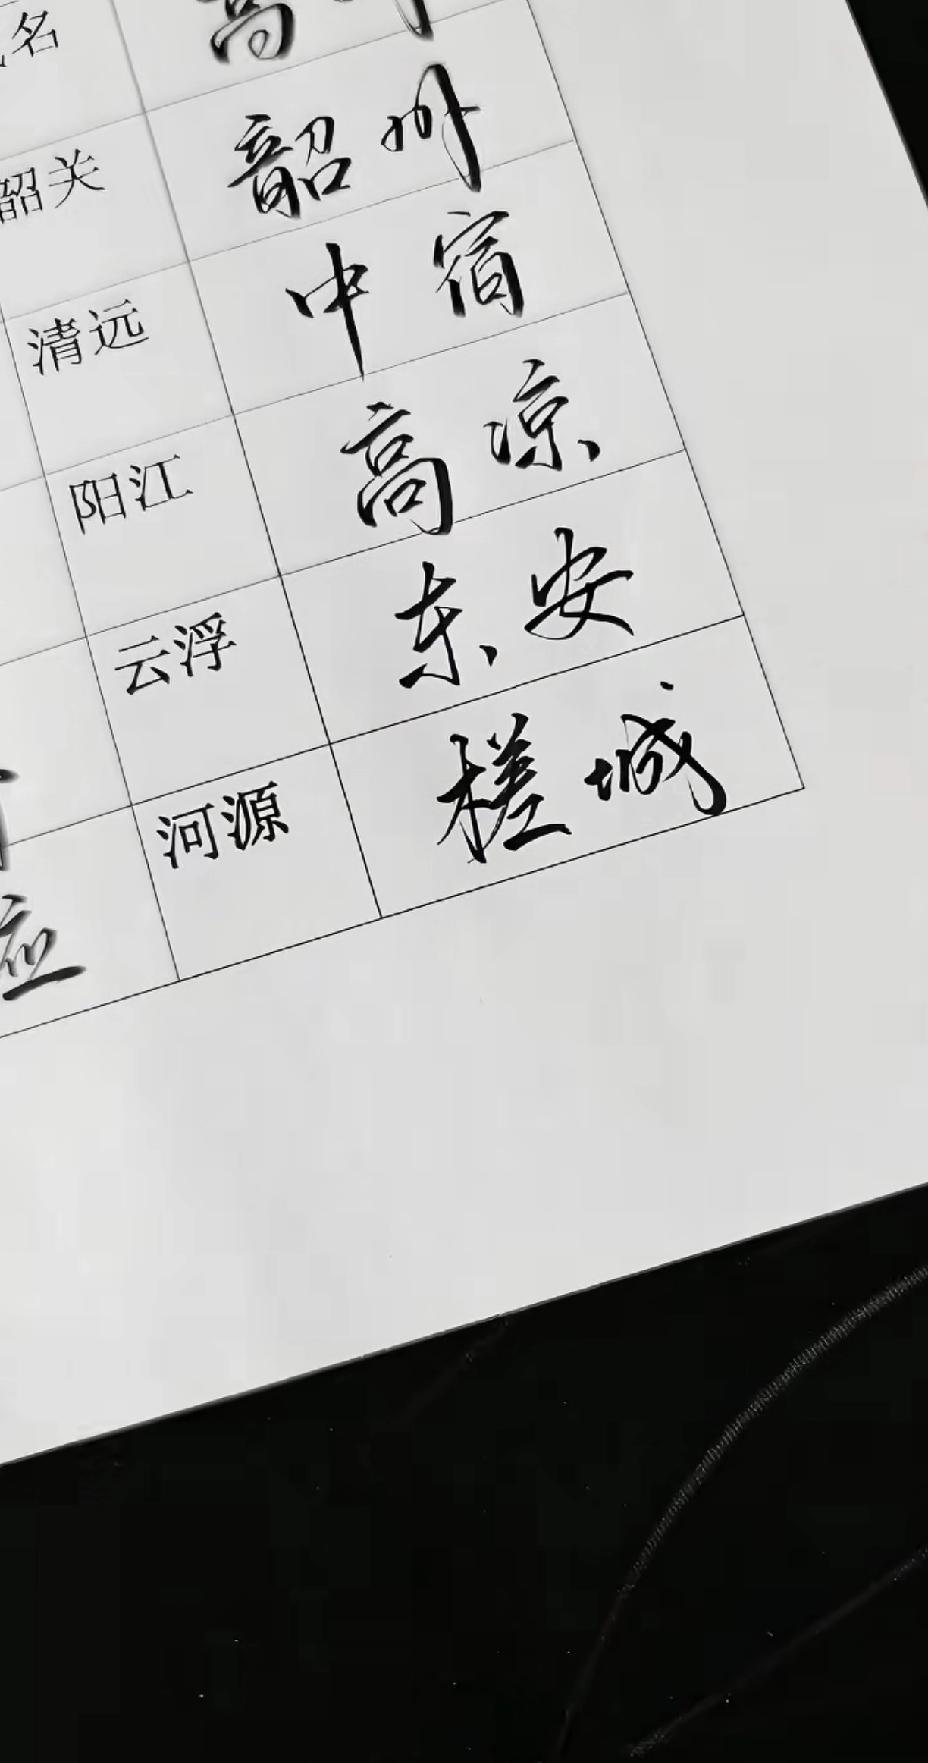 名 高州
韶关 韶州
清远 中宿
阳江 高凉
云浮 东安
河源 槎城
应